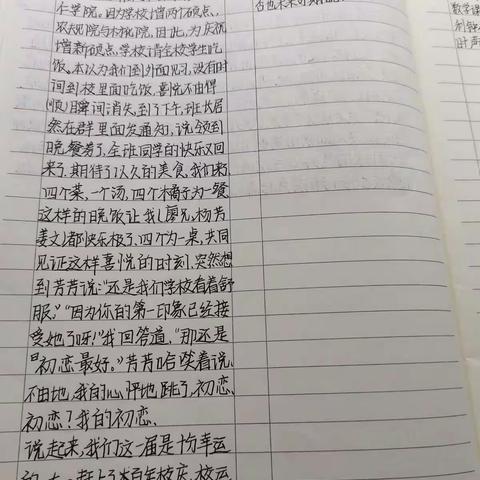 学院。因为学校增两个硕点,
农规院与林化院,因此,为庆祝
增新硕点,学校请全校学生吃
饭。本以为我们到外面见习,没有时
间到校里面吃饭,喜悦不由得
瞬间消失,到了下午,班长居
然在群里面发通知,说领到
晚餐券了,全班同学的快乐又回
来了,期待了以久的美食,我们来了,
四个菜,一个汤,四个橘子为一餐
这样的晚饭让我(廖兄,杨芳
姜文)都快乐极了,四个为一桌,共同
见证这样喜悦的时刻,突然想
到芳芳说:“还是我们学校看着舒
服。”“因为你的第一印象已经接
受她了呀!”我回答道,“那还是
『初恋最好。”芳芳哈笑着说,
不由地,我的心怦地跳了,初恋、
初恋?我的初恋、
说起来,我们这一届是十份幸运
否也未来
数学课
时声